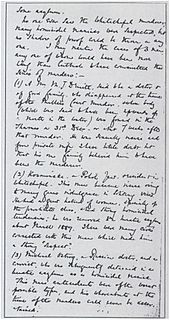 some asylum.
No one ever saw the Whitechapel murderer,
many homicidal maniacs were suspected, but
no shadow of proof could be thrown on any
one. I may mention the cases of 3 men,
any one of whom would have been more
likely than Cutbush to have committed this
series of murders:—
(1) A Mr M. J. Druitt, said to be a doctor &
of good family, who disappeared at the time
of the Miller's Court murder, whose body
(which was said to have been upwards of
a month in the water) was found in the
Thames on 31st Dec. – or abt 7 weeks after
that murder. He was sexually insane and
from private info I have little doubt but
that his own family believed him to have
been the murderer.
(2) Kosminski, a Polish Jew, & resident in
Whitechapel. This man became insane owing
to many years indulgence in solitary vices.
He had a great hatred of women, specially of
the prostitute class, & had strong homicidal
tendencies; he was removed to a lunatic asylum
about March 1889. There were many circs
connected with this man which made him
a strong "suspect".
(3) Michael Ostrog, a Russian doctor, and a
convict, who was subsequently detained in a
lunatic asylum as a homicidal maniac.
This man's antecedents were of the worst
possible type, and his whereabouts at the
time of the murders could never be ascer-
tained.